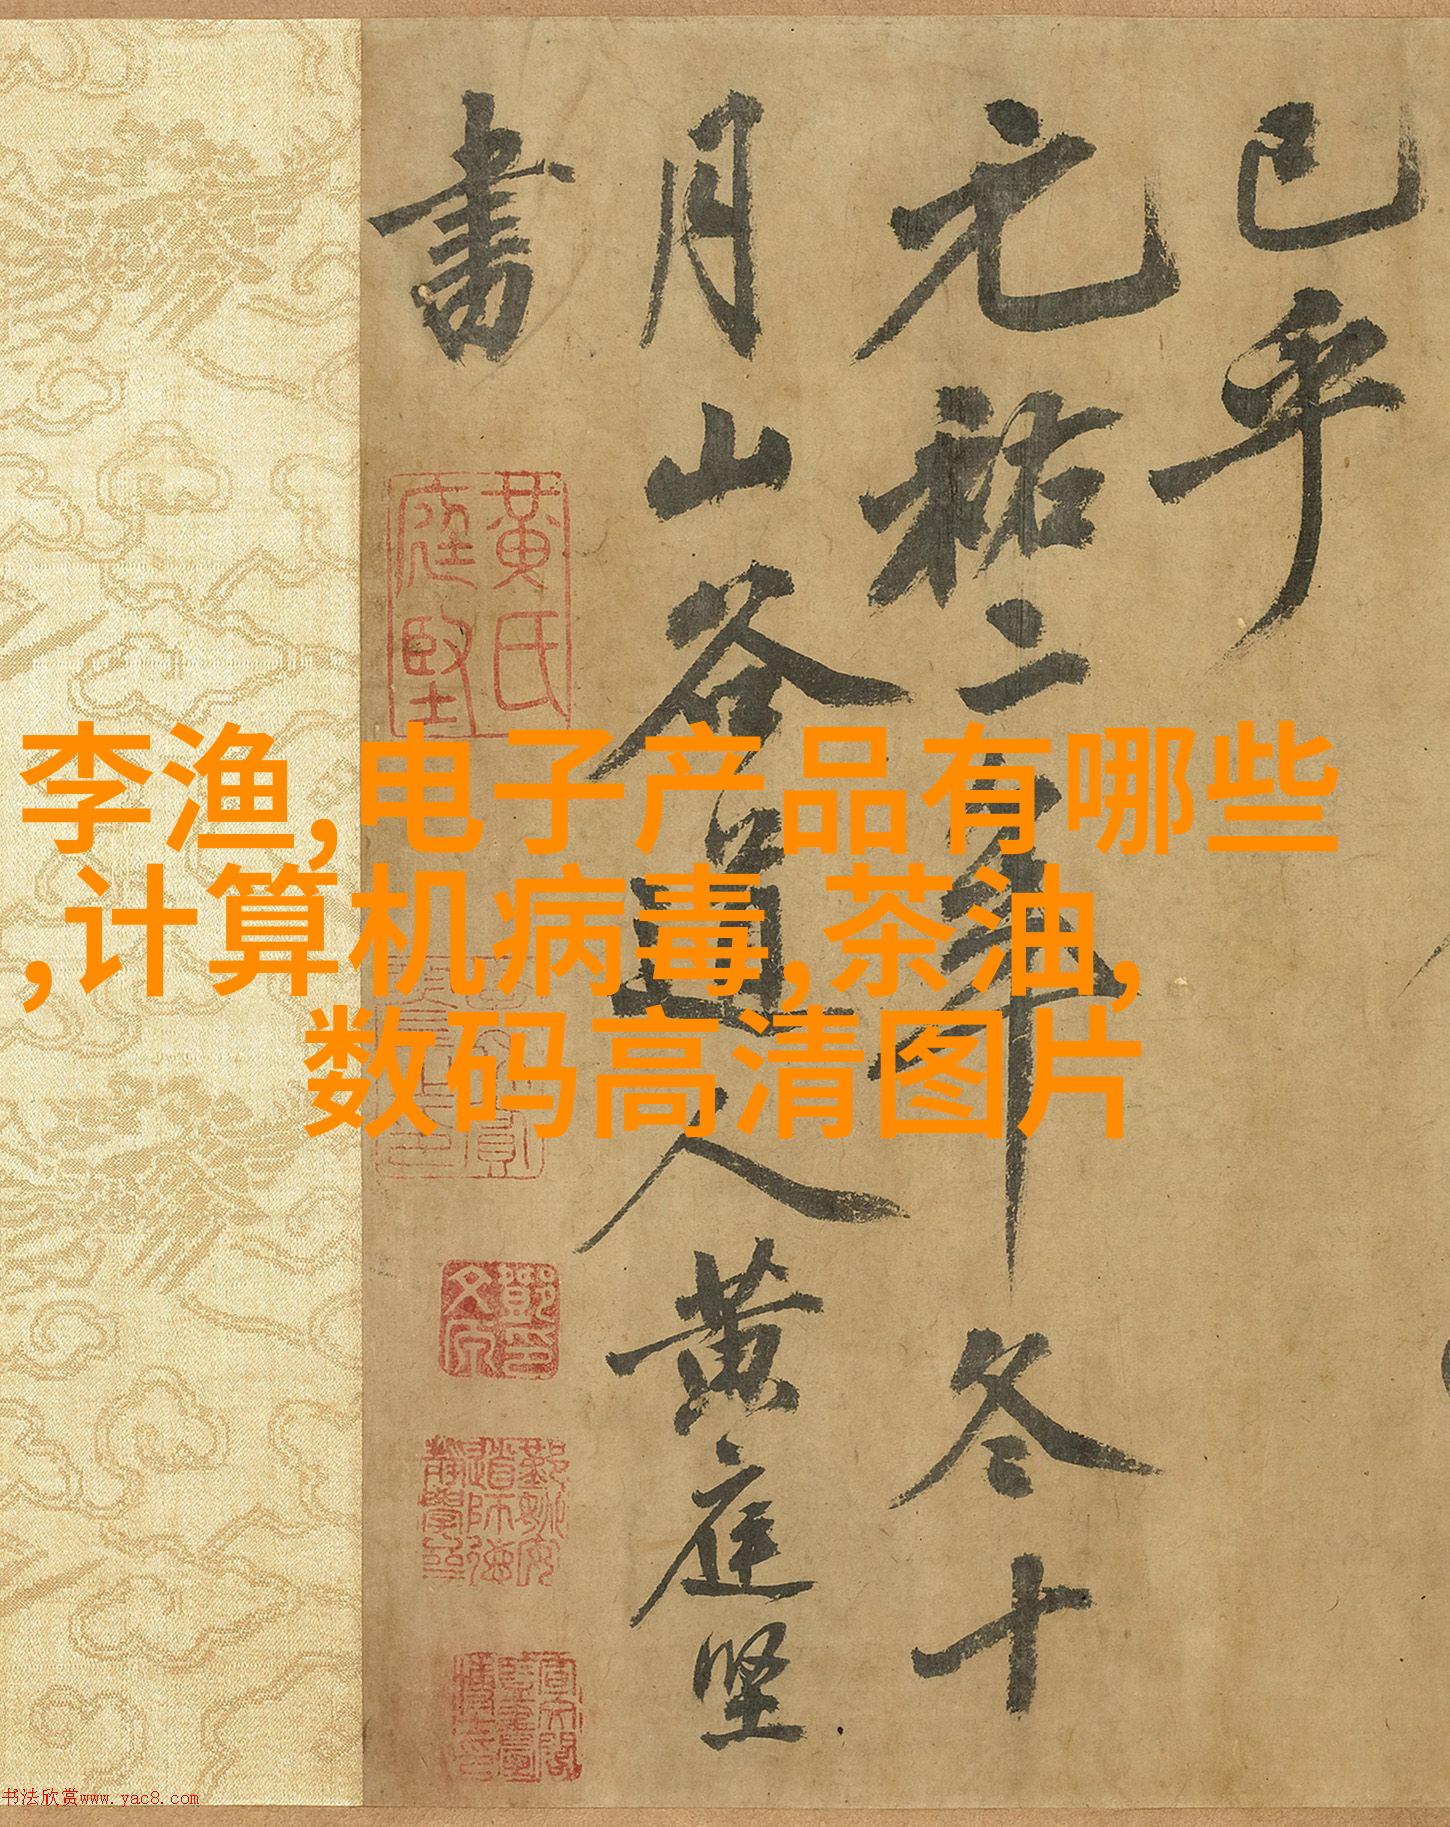 已乎
元祐二年冬十
月山谷道人黄庭坚
書
黄氏庭堅
李渔,电子产品有哪些
,计算机病毒,茶油,
数码高清图片
书法欣赏www.yac8.com